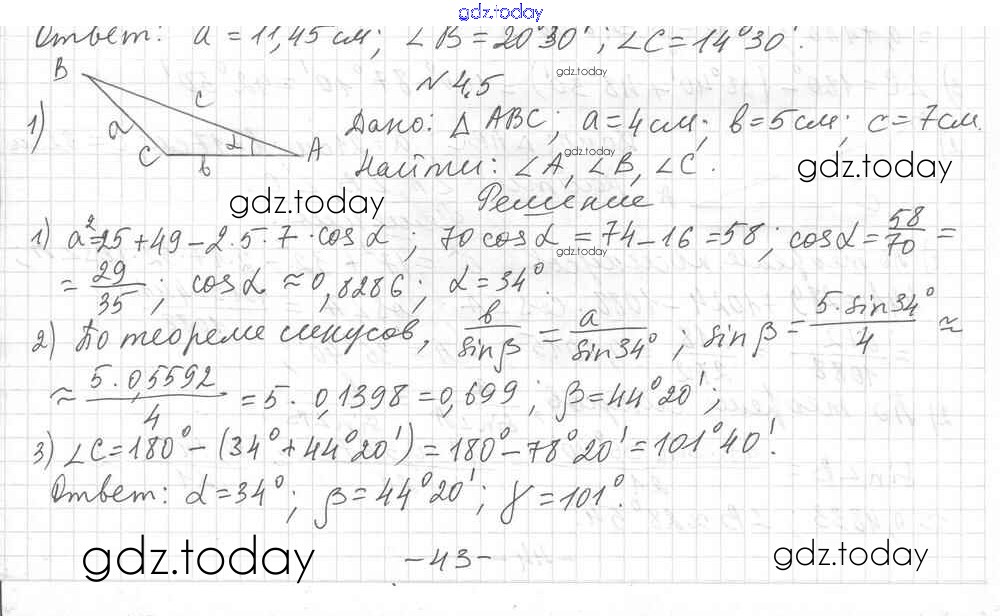 gdz.today
Ответ: a = 11,45 см; ∠B = 20°30'; ∠C = 14°30'.
№ 45
gdz.today
1)
B
c
a
C
α
A
b
Дано: △ ABC; a = 4 см; b = 5 см; c = 7 см.
gdz.today
Найти: ∠A, ∠B, ∠C.
gdz.today
gdz.today
Решение
1) a² = 25 + 49 – 2·5·7·cos α; 70 cos α = 74 – 16 = 58; cos α = 58/70 =
gdz.today
= 29/35; cos α ≈ 0,8286; α = 34°.
2) По теореме синусов, b/sin β = a/sin 34°; sin β = 5·sin 34°/4 ≈
≈ 5·0,5592/4 = 5·0,1398 = 0,699; β = 44°20';
3) ∠C = 180° – (34° + 44°20') = 180° – 78°20' = 101°40'.
Ответ: α = 34°; β = 44°20'; γ = 101°.
gdz.today
– 43 –
gdz.today